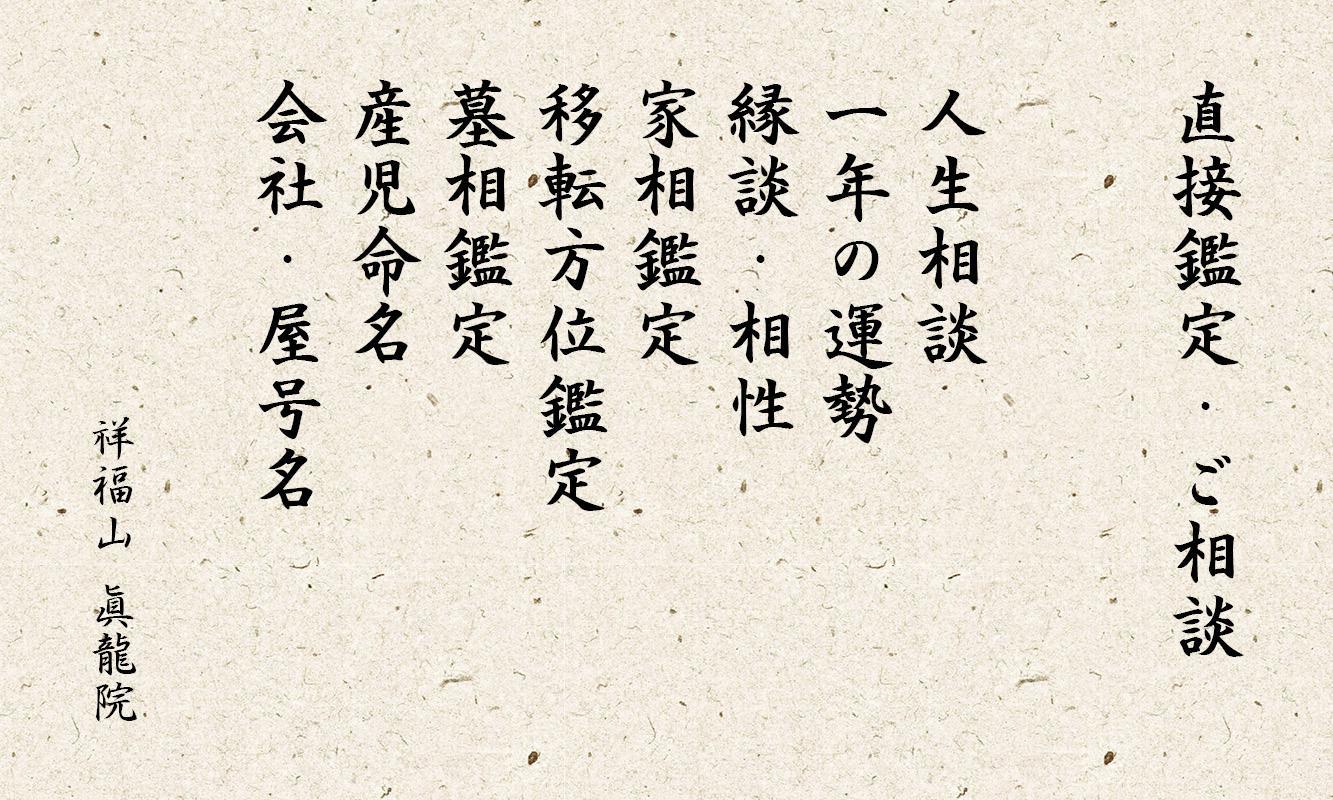 直接鑑定・ご相談
人生相談
一年の運勢
縁談・相性
家相鑑定
移転方位鑑定
墓相鑑定
産児命名
会社・屋号名
祥福山 眞龍院